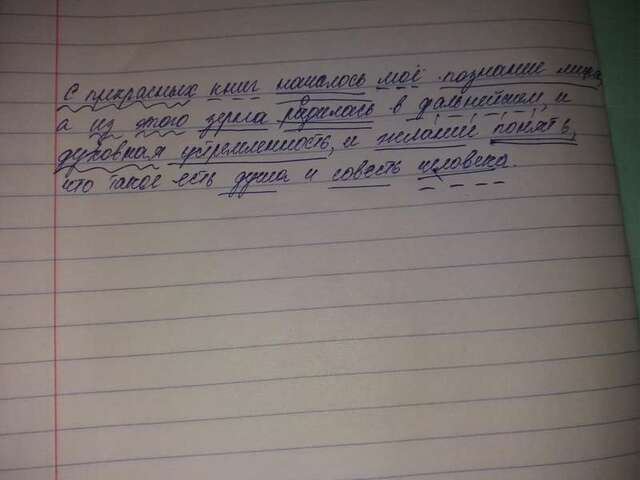 С прекрасных книг началось моё познание мира,
а из этого зерна родилась в дальнейшем, и
духовная устремленность, и желание понять,
что такое есть душа и совесть человека.